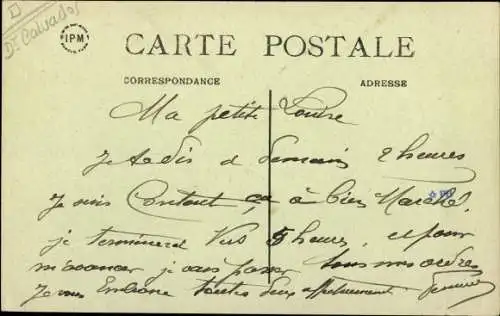 Dt Calvados
IPM
CARTE POSTALE
CORRESPONDANCE
ADRESSE
Ma petite Louise
Je te dis à demain 2 heures
Je suis Content, ça à bien Marché,
je terminerai Vers 5 heures, et pour
je vais passer tous mes ordres
Je vous Embrasse toutes deux affectueusement